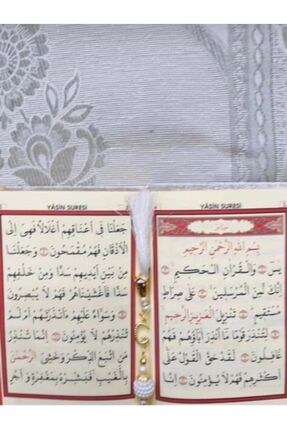 YÂSİN SURESİ
بِسْمِ اللّٰهِ الرَّحْمٰنِ الرَّحِيمِ
يٰسٓ وَالْقُرْاٰنِ الْحَكِيمِ
اِنَّكَ لَمِنَ الْمُرْسَلِينَ عَلٰى صِرَاطٍ
مُسْتَقِيمٍ تَنْزِيلَ الْعَزِيزِ الرَّحِيمِ
لِتُنْذِرَ قَوْمًا مَٓا اُنْذِرَ اٰبَٓاؤُ۬هُمْ فَهُمْ
غَافِلُونَ لَقَدْ حَقَّ الْقَوْلُ عَلٰٓى
اَكْثَرِهِمْ فَهُمْ لَا يُؤْمِنُونَ اِنَّا
YÂSİN SURESİ
جَعَلْنَا فِٓي اَعْنَاقِهِمْ اَغْلَالًا فَهِيَ اِلَى
الْاَذْقَانِ فَهُمْ مُقْمَحُونَ وَجَعَلْنَا
مِنْ بَيْنِ اَيْدِيهِمْ سَدًّا وَمِنْ خَلْفِهِمْ
سَدًّا فَاَغْشَيْنَاهُمْ فَهُمْ لَا يُبْصِرُونَ
وَسَوَٓاءٌ عَلَيْهِمْ ءَاَنْذَرْتَهُمْ اَمْ لَمْ
تُنْذِرْهُمْ لَا يُؤْمِنُونَ اِنَّمَا تُنْذِرُ
مَنِ اتَّبَعَ الذِّكْرَ وَخَشِيَ الرَّحْمٰنَ
بِالْغَيْبِ فَبَشِّرْهُ بِمَغْفِرَةٍ وَاَجْرٍ